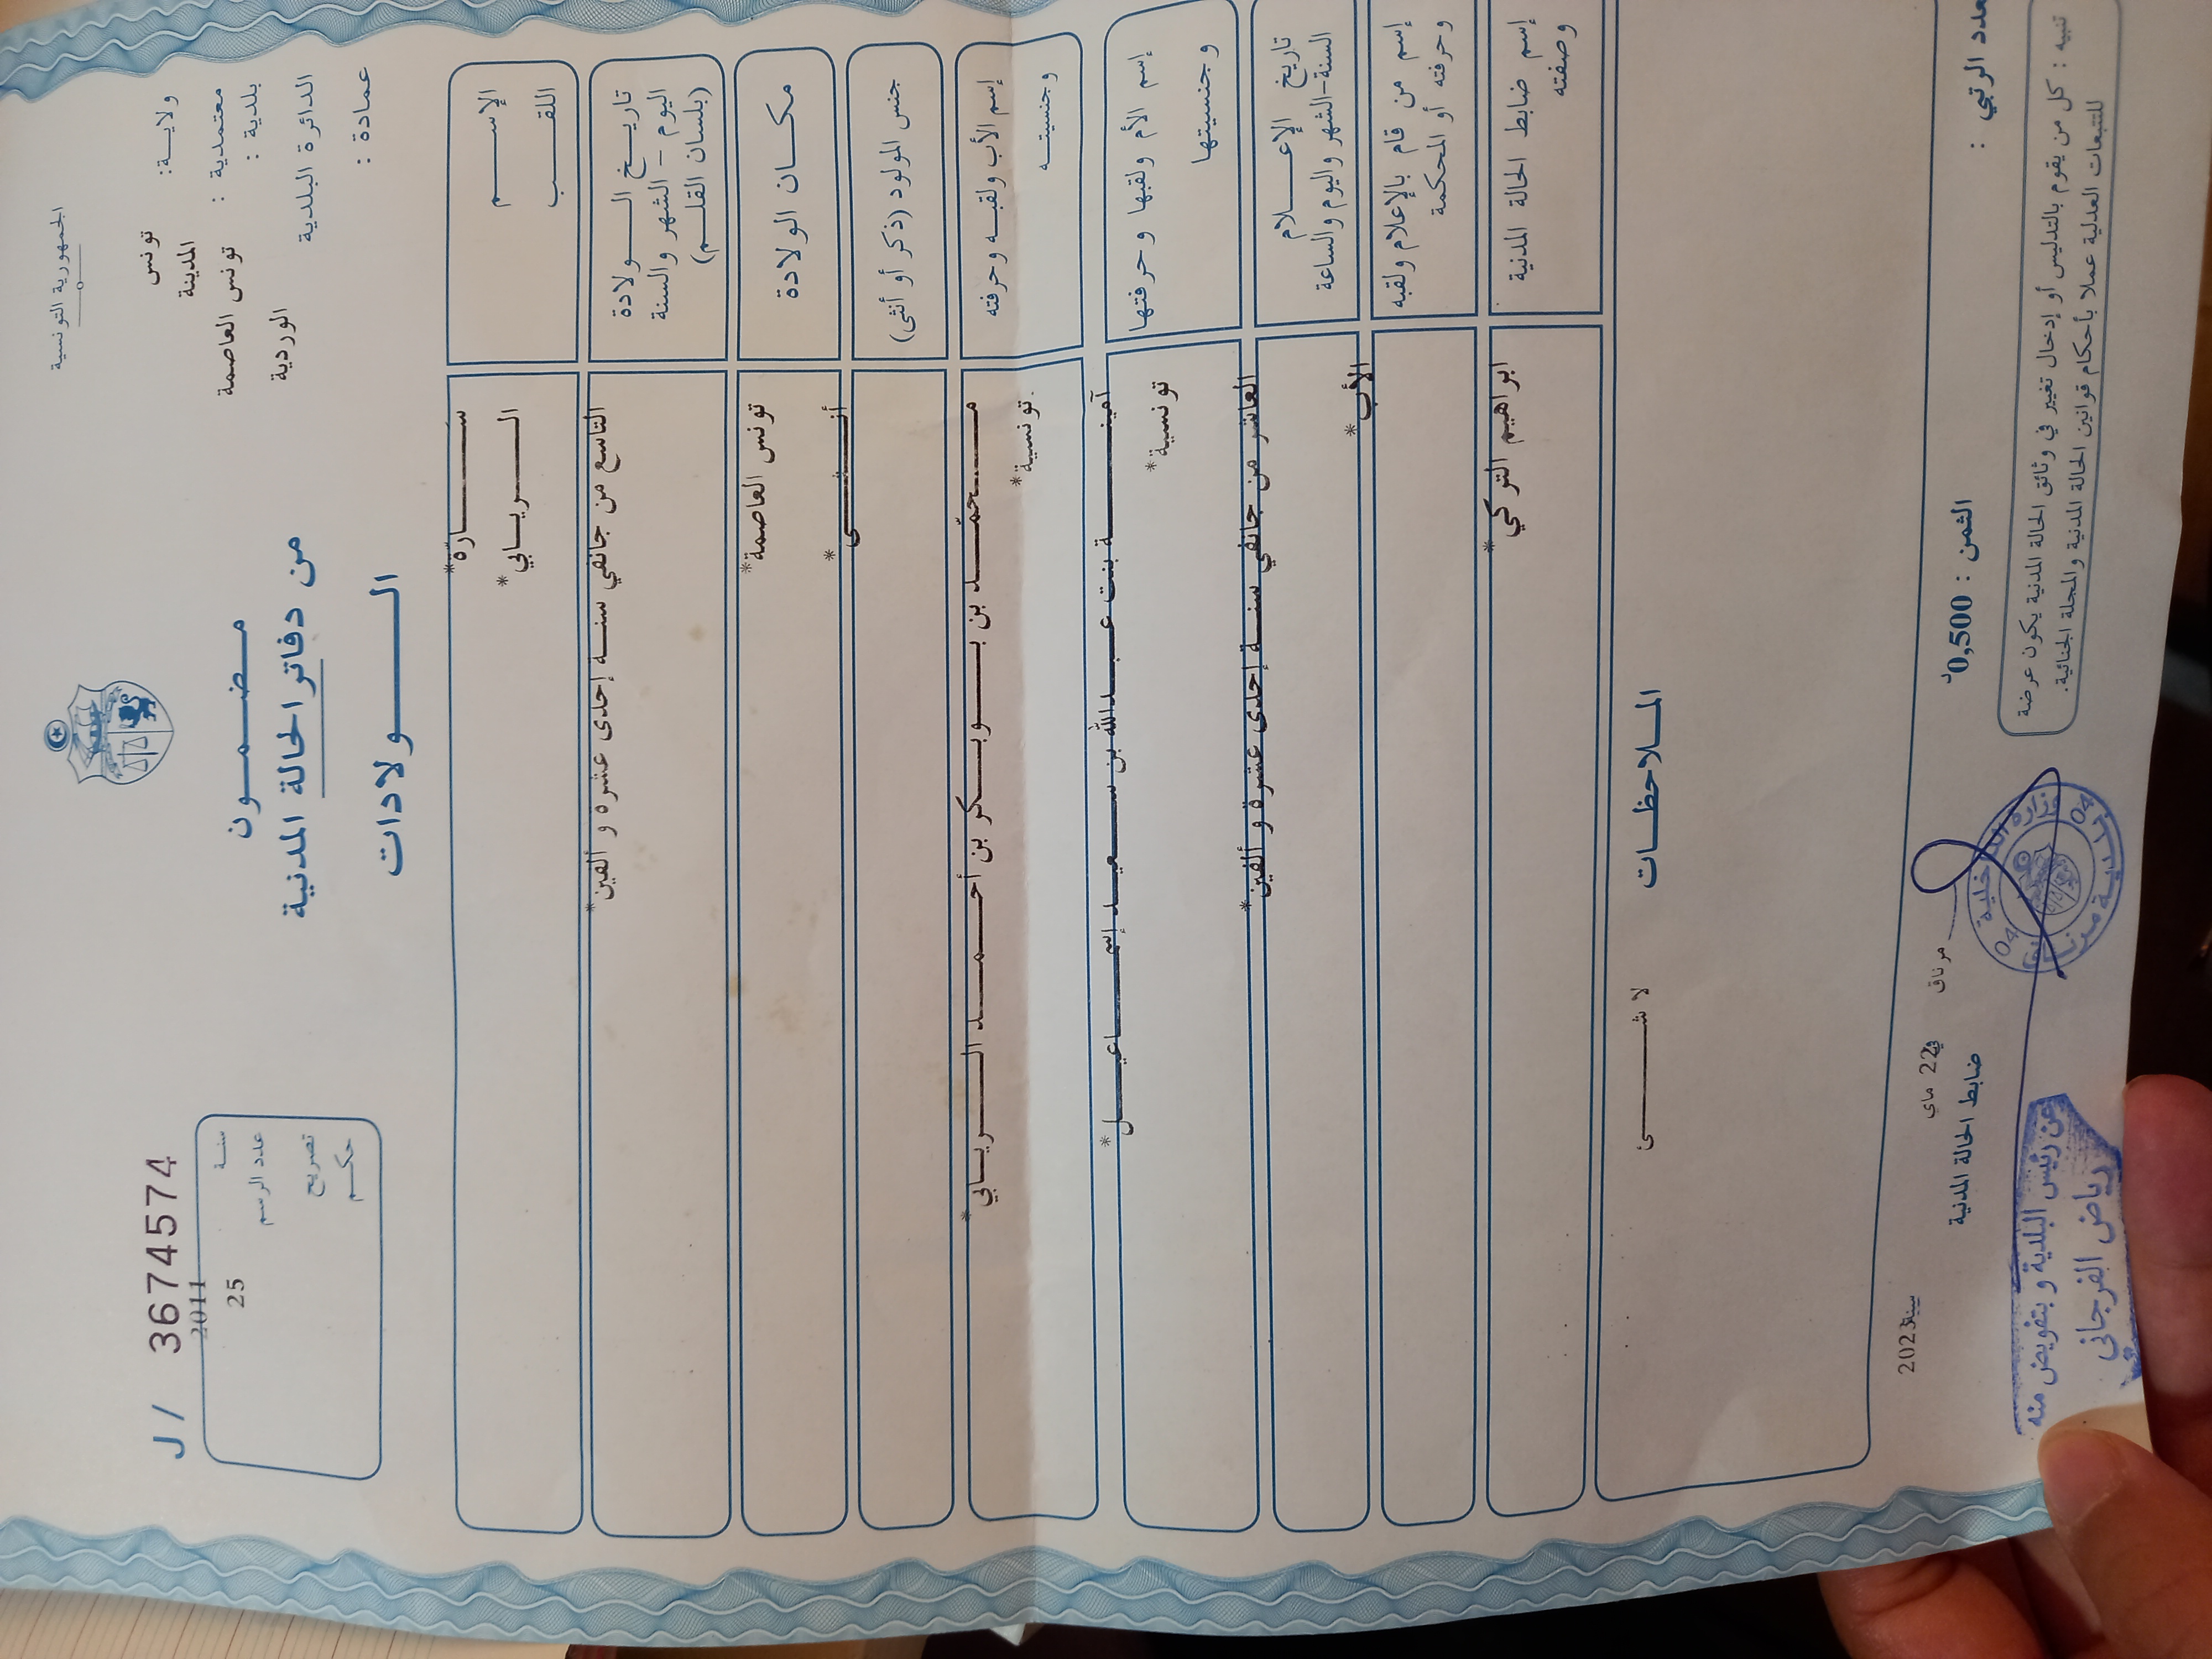 الجمهورية التونسية
ولاية: تونس
المدينة
معتمدية : تونس العاصمة
بلدية :
الوردية
الدائرة البلدية
عمادة :
مضمون
من دفاتر الحالة المدنية
الولادات
J / 3674574
سنة 2011
عدد الرسم 25
تصريح
حكم
الإسم
اللقب
سارة*
الريابي*
تاريخ الولادة
اليوم - الشهر والسنة
(بلسان القلم)
التاسع من جانفي سنة إحدى عشرة و ألفين*
مكان الولادة
تونس العاصمة*
جنس المولود (ذكر أو أنثى)
أنثى*
إسم الأب ولقبه وحرفته
وجنسيته
محمّد بن بوبكر بن أحمد الريابي*
تونسية*
إسم الأم ولقبها وحرفتها
وجنسيتها
آمنة بنت عبدالله بن سعيد إسماعيل*
تونسية*
تاريخ الإعلام
السنة-الشهر واليوم والساعة
العاشر من جانفي سنة إحدى عشرة و ألفين*
إسم من قام بالإعلام ولقبه
وحرفته أو المحكمة
الأب*
إسم ضابط الحالة المدنية
وصفته
ابراهيم التركي*
الملاحظات
لا شئ
مرناق في 22 ماي سنة 2023
ضابط الحالة المدنية
عدد الرتبي :
الثمن : 0,500د
تنبيه : كل من يقوم بالتدليس أو إدخال تغيير في وثائق الحالة المدنية يكون عرضة
للتتبعات العدلية عملا بأحكام قوانين الحالة المدنية والمجلة الجنائية.
وزارة الداخلية
04 04
عن رئيس البلدية و بتفويض منه
رياض الفرجاني